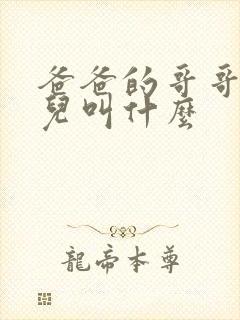 爸爸的哥哥
兒叫什麼
龍帝本尊